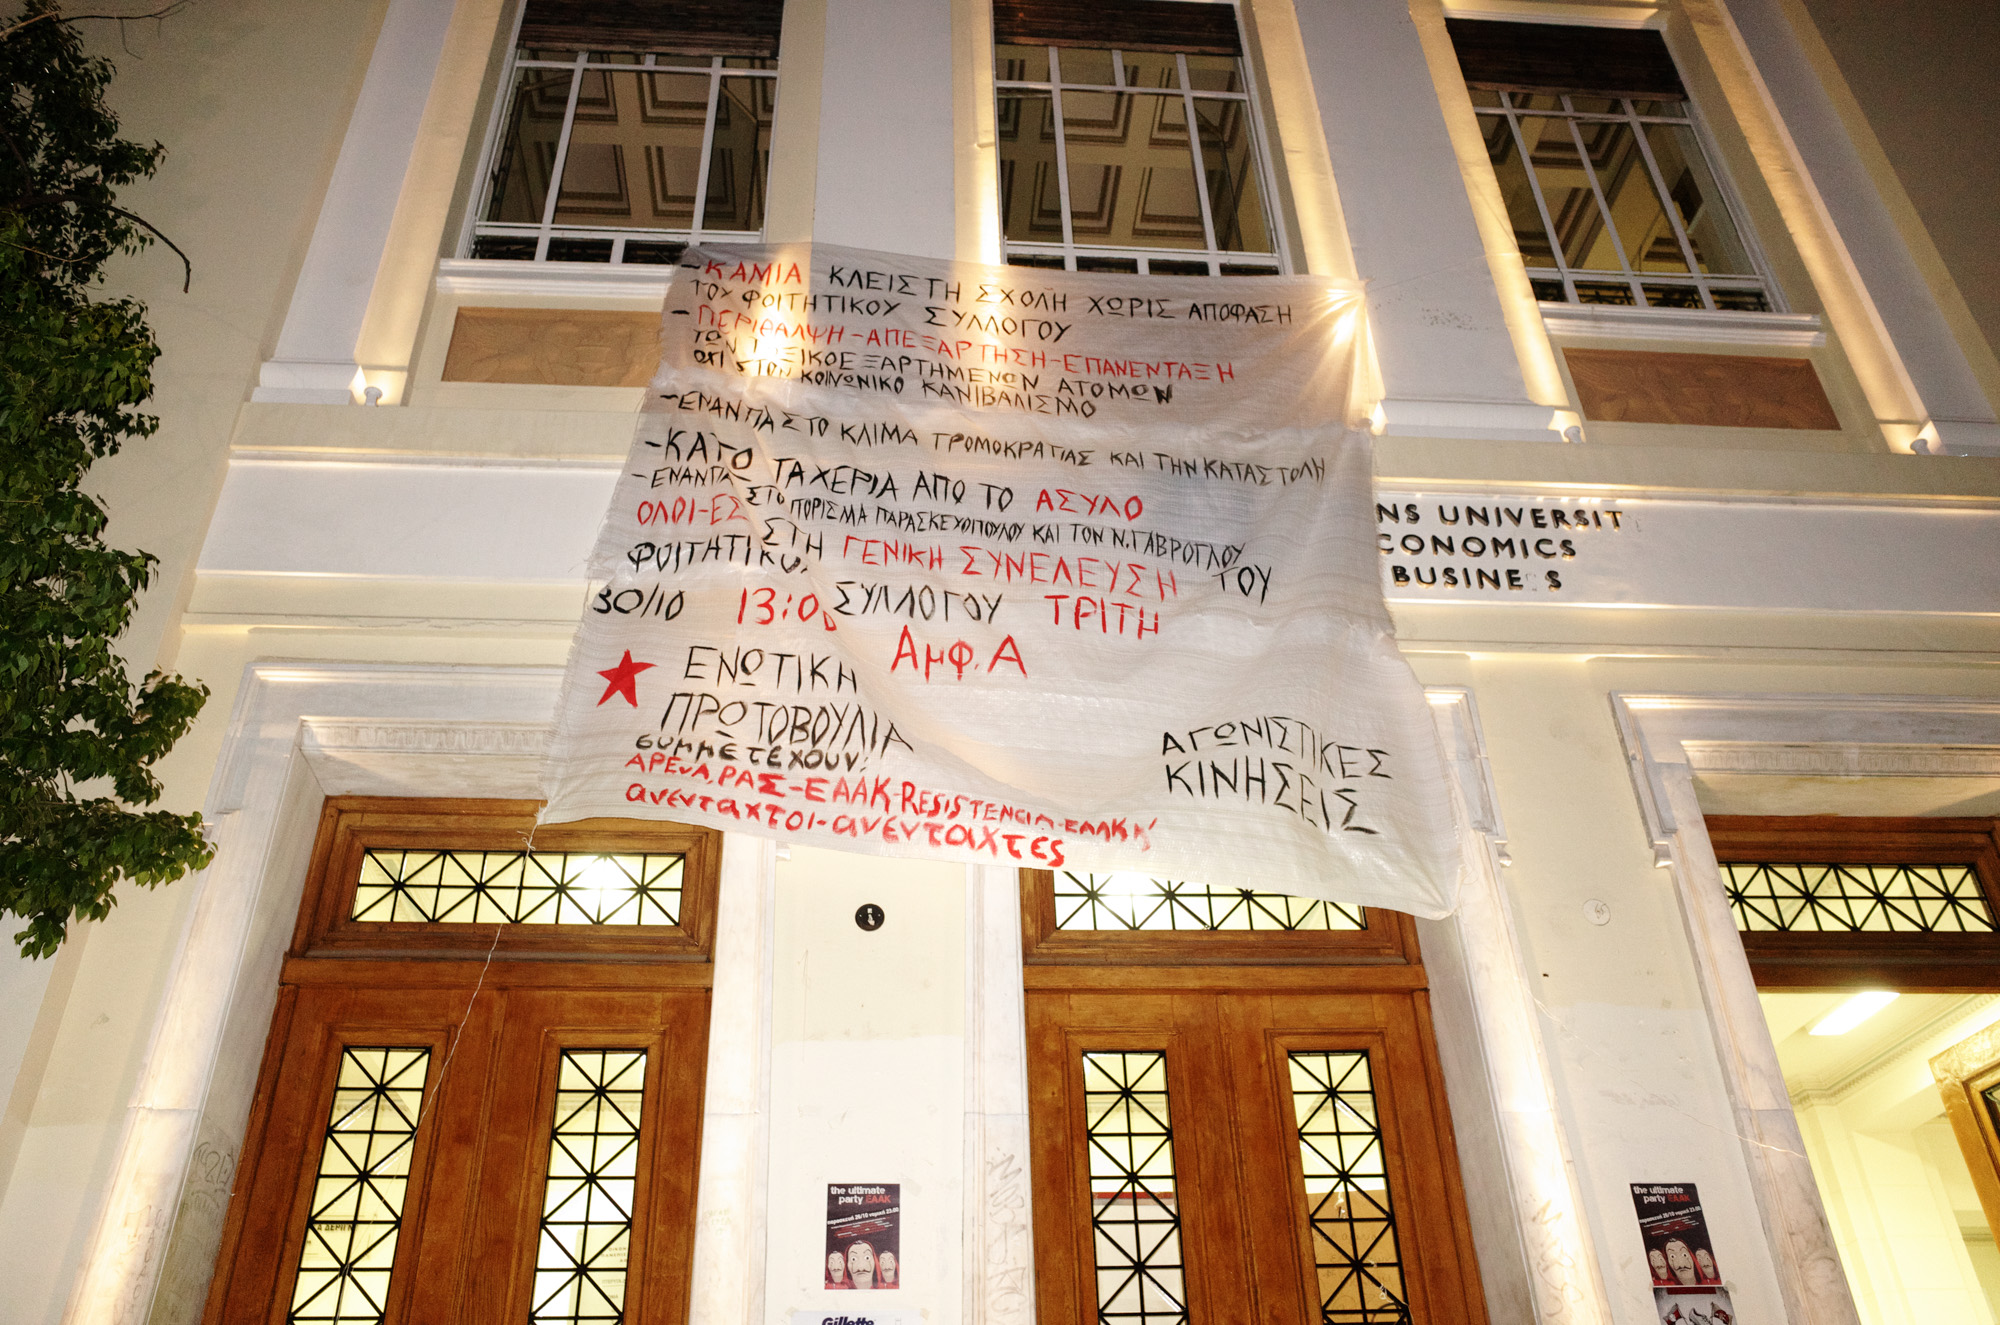 -ΚΑΜΙΑ ΚΛΕΙΣΤΗ ΣΧΟΛΗ ΧΩΡΙΣ ΑΠΟΦΑΣΗ
ΤΟΥ ΦΟΙΤΗΤΙΚΟΥ ΣΥΛΛΟΓΟΥ
-ΠΕΡΙΘΑΛΨΗ-ΑΠΕΞΑΡΤΗΣΗ-ΕΠΑΝΕΝΤΑΞΗ
ΤΩΝ ΤΟΞΙΚΟΕΞΑΡΤΗΜΕΝΩΝ ΑΤΟΜΩΝ
ΟΧΙ ΣΤΟΝ ΚΟΙΝΩΝΙΚΟ ΚΑΝΙΒΑΛΙΣΜΟ
-ΕΝΑΝΤΙΑ ΣΤΟ ΚΛΙΜΑ ΤΡΟΜΟΚΡΑΤΙΑΣ ΚΑΙ ΤΗΝ ΚΑΤΑΣΤΟΛΗ
-ΚΑΤΩ ΤΑ ΧΕΡΙΑ ΑΠΟ ΤΟ ΑΣΥΛΟ
-ΕΝΑΝΤΙΑ ΣΤΟ ΠΟΡΙΣΜΑ ΠΑΡΑΣΚΕΥΟΠΟΥΛΟΥ ΚΑΙ ΤΟΝ Ν. ΓΑΒΡΟΓΛΟΥ
ΟΛΟΙ-ΕΣ ΣΤΗ ΓΕΝΙΚΗ ΣΥΝΕΛΕΥΣΗ ΤΟΥ
ΦΟΙΤΗΤΙΚΟΥ ΣΥΛΛΟΓΟΥ ΤΡΙΤΗ
30/10 13:00 ΑμΦ. Α
ΕΝΩΤΙΚΗ
ΠΡΩΤΟΒΟΥΛΙΑ
συμμετέχουν:
ΑΡΕΝΑ, ΡΑΣ-ΕΑΑΚ-RESISTENCIA-ΕΑΑΚ
ανένταχτοι-ανένταχτες
ΑΓΩΝΙΣΤΙΚΕΣ
ΚΙΝΗΣΕΙΣ
NS UNIVERSIT
CONOMICS
BUSINE S
the ultimate
party ΕΑΑΚ
παρασκευή 26/10 νομική 23:00
the ultimate
party ΕΑΑΚ
παρασκευή 26/10 νομική 23:00
Gillette